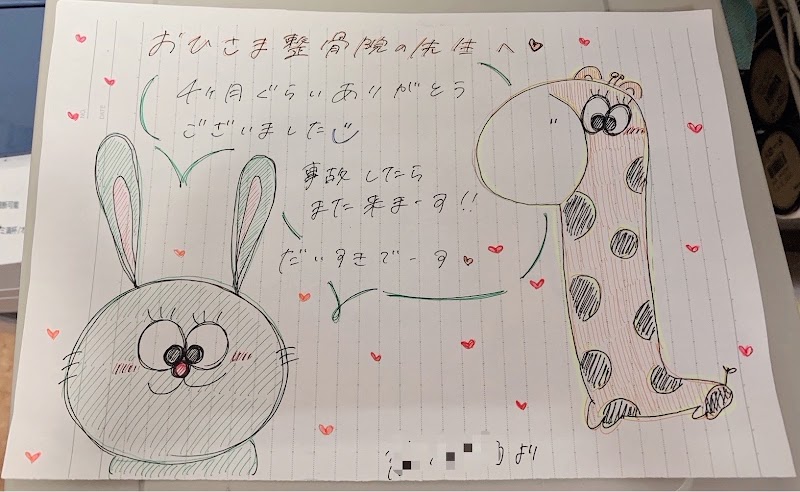 おひさま整骨院の先生へ♥
4ヶ月ぐらいありがとう
ございました
事故したら
また来まーす!!
だいすきでーす♥
より